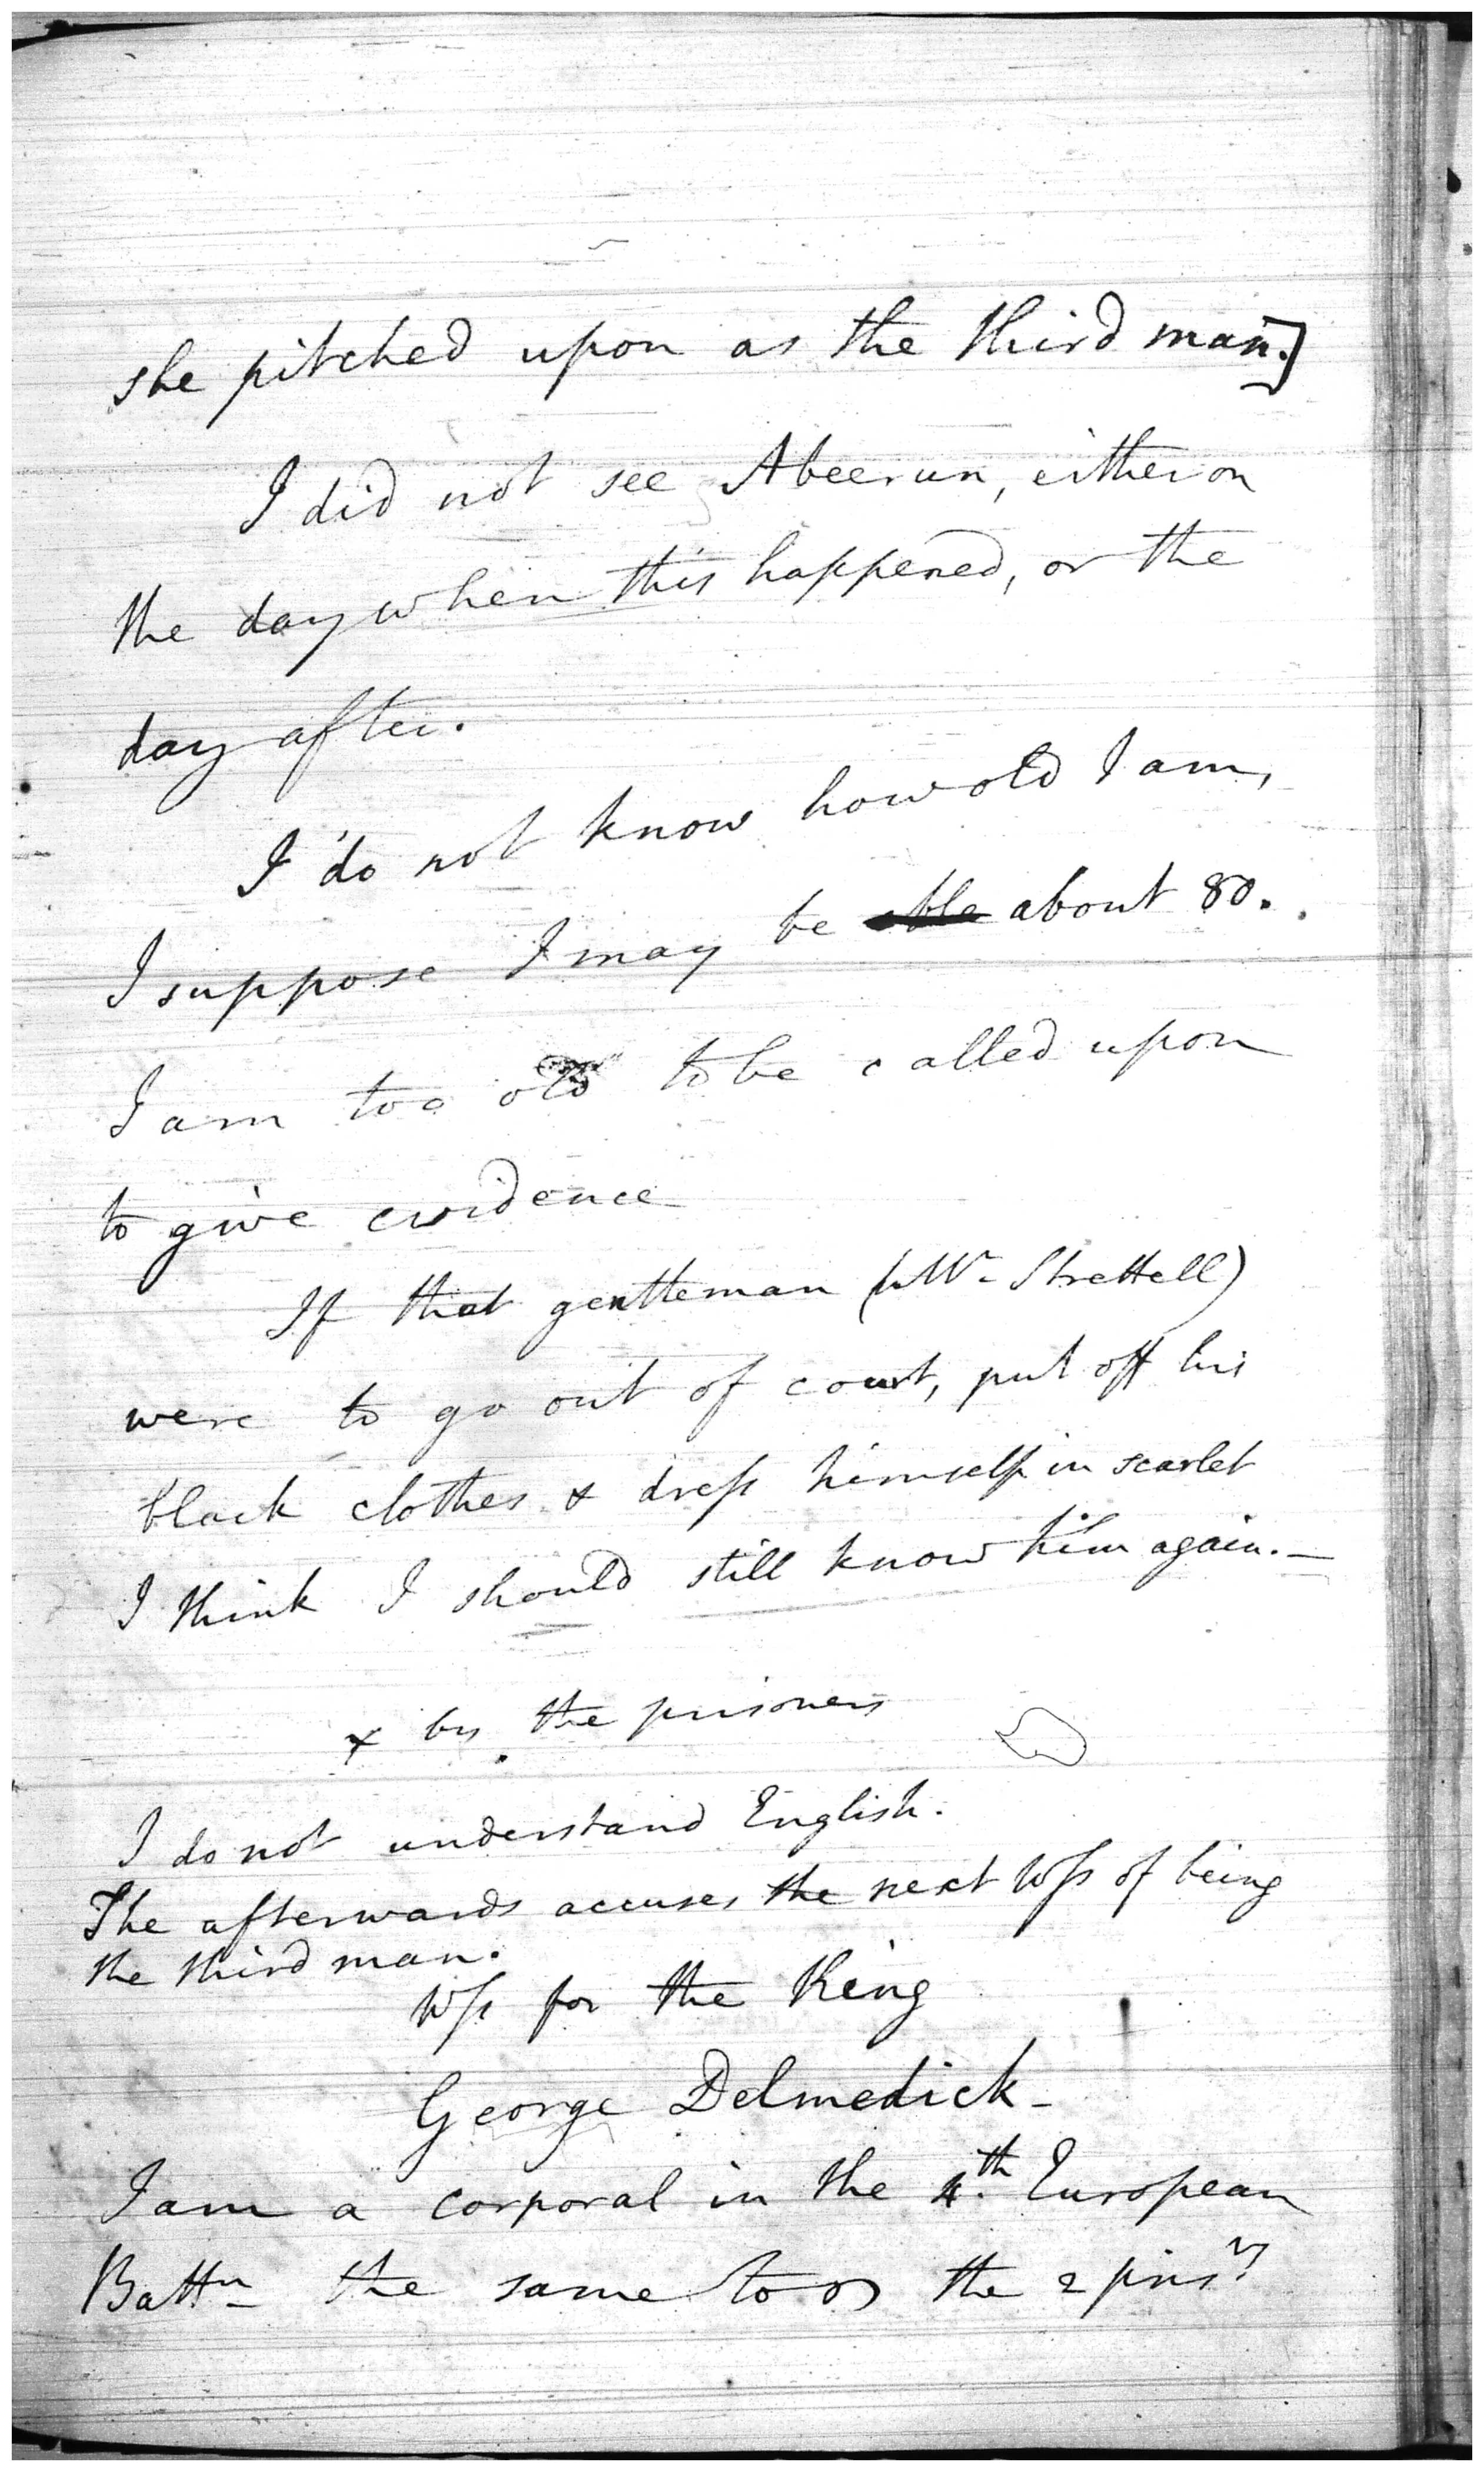 she pitched upon as the third man.]
I did not see Abeerun, either on
the day when this happened, or the
day after.
I do not know how old I am,
I suppose I may be able about 80.
I am too old to be called upon
to give evidence
If that gentleman (Mr. Strettell)
were to go out of court, put off his
black clothes & dress himself in scarlet
I think I should still know him again.—
x by the prisoners
I do not understand English.
She afterwards accuses the next Wss of being
the third man.
Wss for the King
George Delmedick -
I am a corporal in the 4th. European
Battn the same to on the 2 prisrs